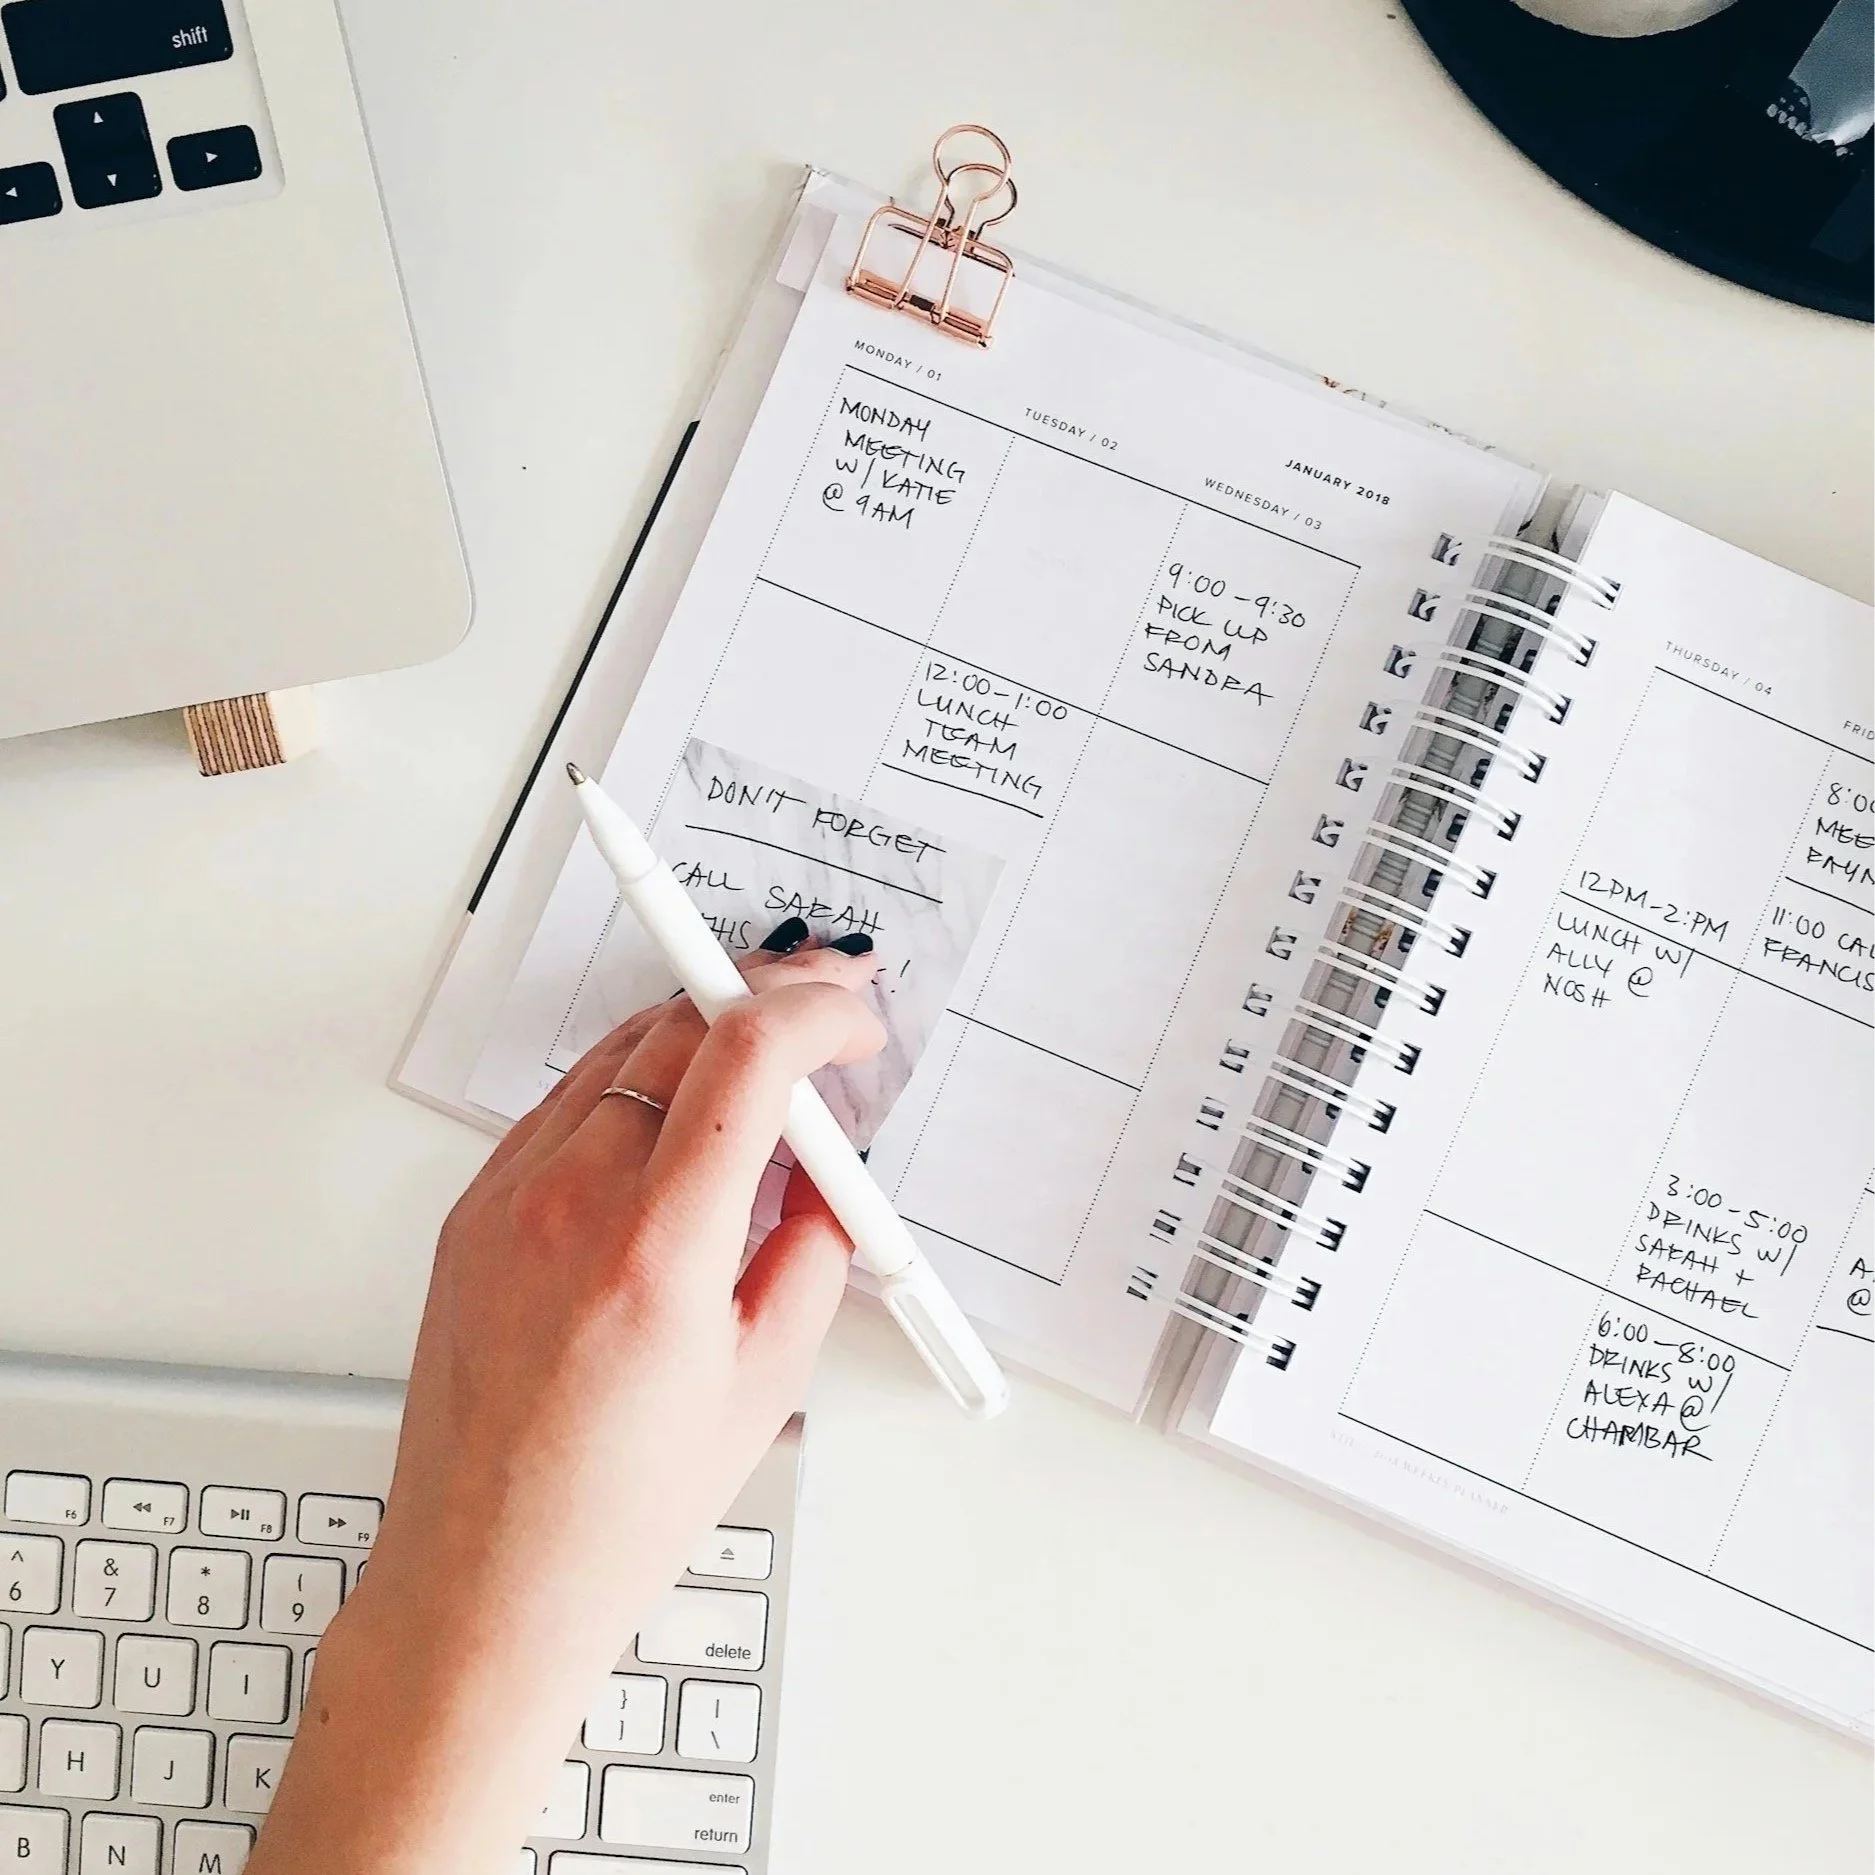 shift
MONDAY / 01
MONDAY
MEETING
W/ KATIE
@ 9AM
TUESDAY / 02
12:00-1:00
LUNCH
TEAM
MEETING
JANUARY 2018
WEDNESDAY / 03
9:00-9:30
PICK UP
FROM
SANDRA
DON'T FORGET
CALL SARAH
THIS
!
THURSDAY / 04
12PM-2:PM
LUNCH W/
ALLY @
NOSH
FRID
8:00
MEE
11:00 CAL
FRANCIS
3:00-5:00
DRINKS W/
SARAH +
RACHAEL
6:00-8:00
DRINKS W/
ALEXA @
CHAMBAR
A
@
WEEKLY PLANNER
F6
F7
F8
F9
^ & * (
6 7 8 9
delete
Y U I } |
] \
H J K
enter
return
B N M